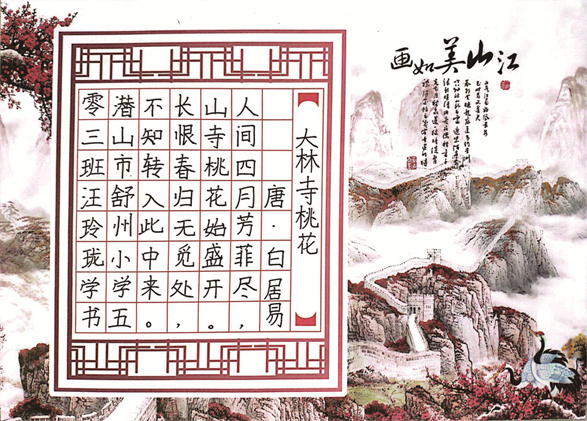 江山美如画
大林寺桃花
唐·白居易
人间四月芳菲尽，
山寺桃花始盛开。
长恨春归无觅处，
不知转入此中来。
潜山市舒州小学五
零三班汪玲珑学书